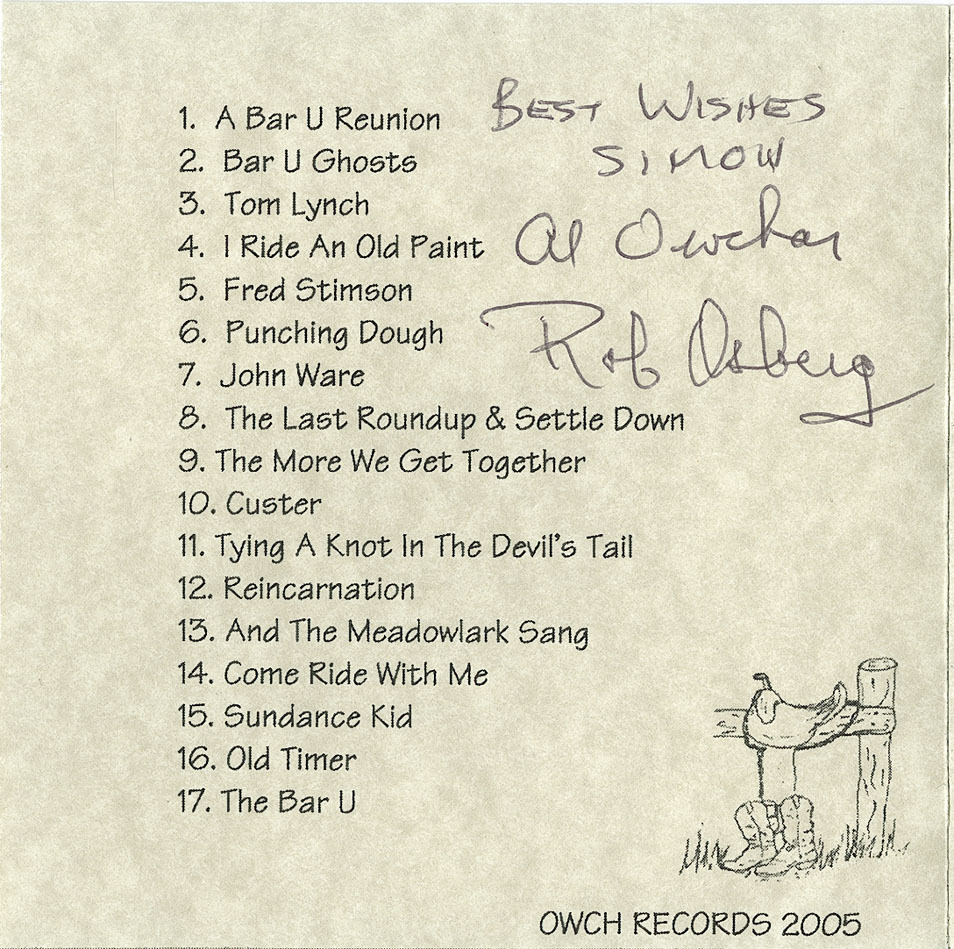 BEST WISHES
1. A Bar U Reunion
SIMON
2. Bar U Ghosts
3. Tom Lynch
Al Owchar
4. I Ride An Old Paint
5. Fred Stimson
6. Punching Dough
Rob Osberg
7. John Ware
8. The Last Roundup & Settle Down
9. The More We Get Together
10. Custer
11. Tying A Knot In The Devil's Tail
12. Reincarnation
13. And The Meadowlark Sang
14. Come Ride With Me
15. Sundance Kid
16. Old Timer
17. The Bar U
OWCH RECORDS 2005